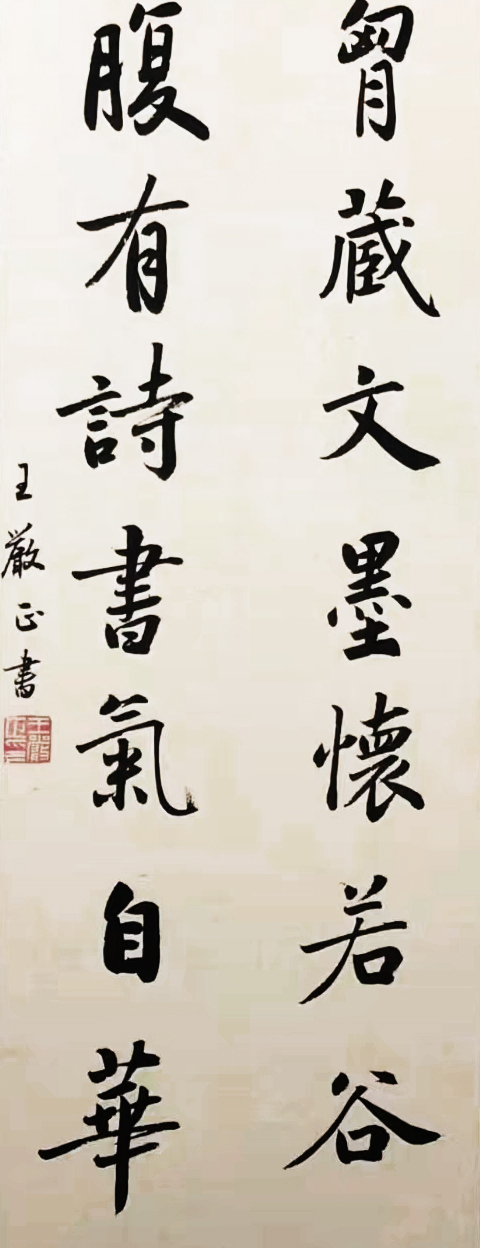 胷藏文墨懷若谷
腹有詩書氣自華
王嚴正書